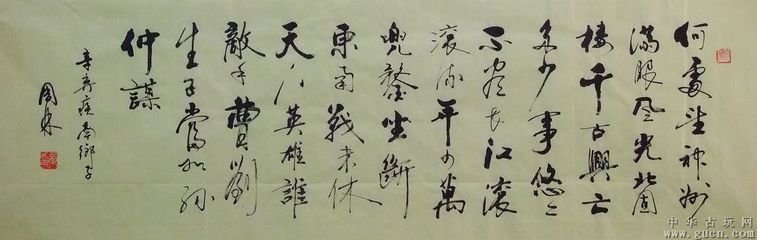 何處望神州
滿眼風光北固
樓千古興亡
多少事悠々
不盡長江滾
滾流年少萬
兜鍪坐斷
東南戰未休
天下英雄誰
敵手曹劉
生子當如孫
仲謀
辛弃疾南鄉子
周
中华古玩网
www.gucn.com